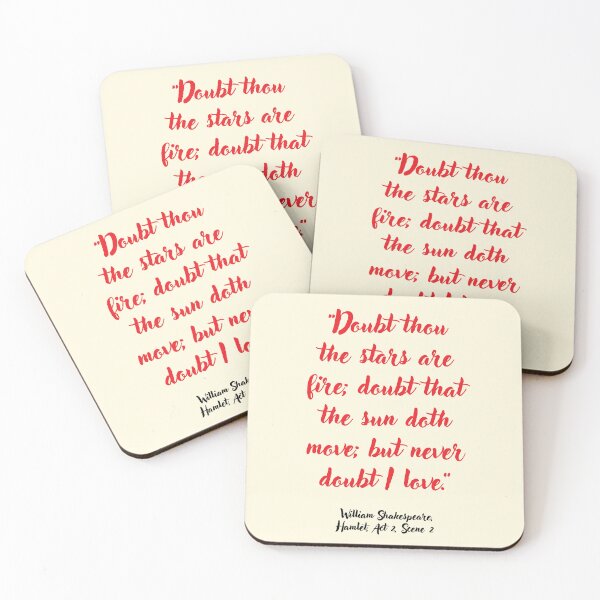 "Doubt thou
the stars are
fire; doubt that
the doth
never
"Doubt thou
the stars are
fire; doubt that
the sun doth
move; but never
"Doubt thou
the stars are
fire; doubt that
the sun doth
move; but
doubt I
William
Hamlet, Act
"Doubt thou
the stars are
fire; doubt that
the sun doth
move; but never
doubt I love."
William Shakespeare,
Hamlet, Act 2, Scene 2